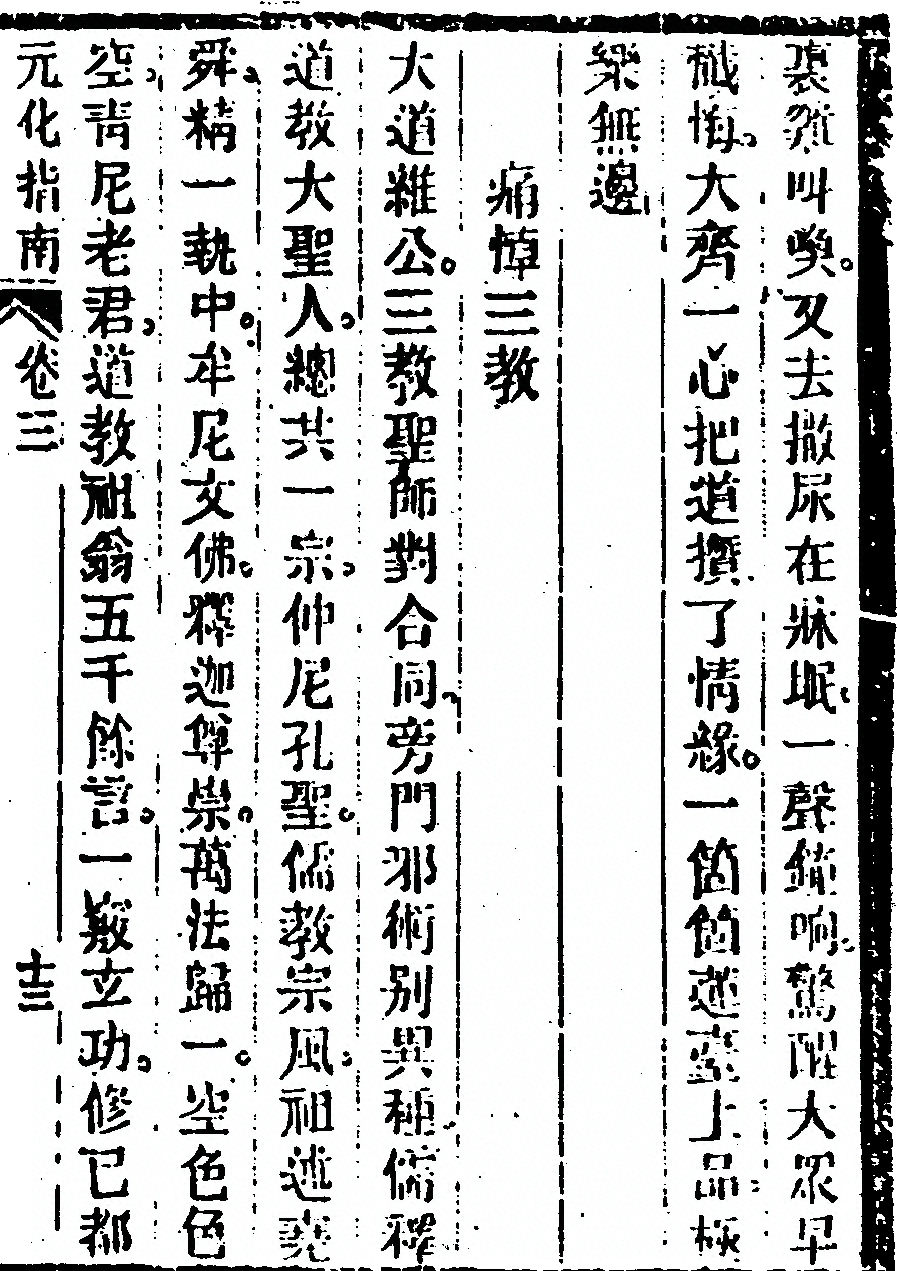 裏聲叫喚。又去撒尿在牀眠。一聲鐘响。驚醒大眾早
懺悔。大齊一心把道攢。了情緣。一箇箇蓮臺上品極
樂無邊
痛悼三教
大道雜公。三教聖師對合同。旁門邪術別異種。儒釋
道教大聖人。總共一宗。仲尼孔聖。儒教宗風。祖述堯
舜。精一執中。牟尼文佛。釋迦尊崇。萬法歸一。空色色
空。青尼老君。道教祖翁。五千餘言。一歸立功。修已都
元化指南 卷三 十三